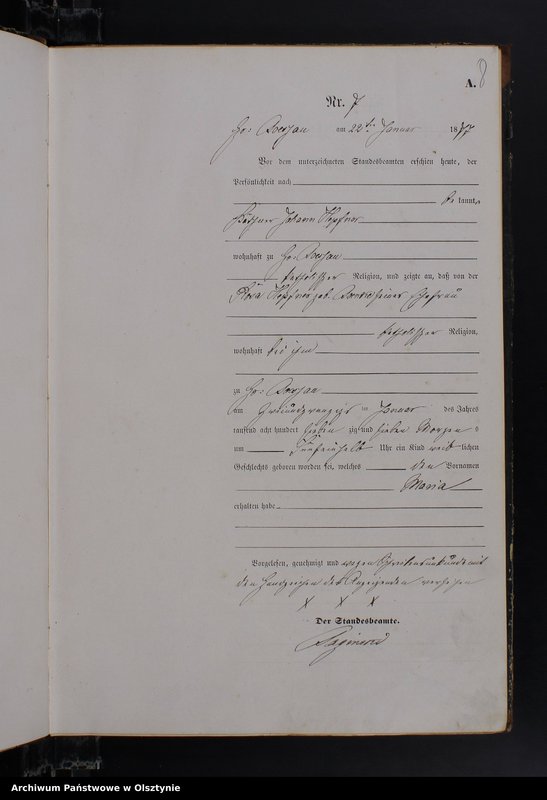 A. 8
Nr. 7
am 22ten Januar 1877
Vor dem unterzeichneten Standesbeamten erschien heute, der
Persönlichkeit nach
be kannt,
Johann Hepfner
wohnhaft zu Gr:
katholischer Religion, und zeigte an, daß von der
Hepfner geb. seiner Ehefrau
katholischer Religion,
wohnhaft bei ihm
zu Gr:
am zweiundzwanzigsten Januar des Jahres
tausend acht hundert sieben zig und sieben Morgens
um Uhr ein Kind weib lichen
Geschlechts geboren worden sei, welches den Vornamen
Maria
erhalten habe
Vorgelesen, genehmigt und wegen Schreibensunkunde mit
den Handzeichen des Anzeigenden versehen
X X X
Der Standesbeamte.
Archiwum Państwowe w Olsztynie